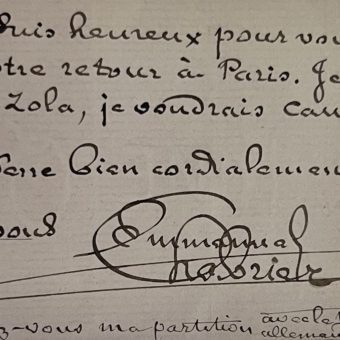 suis heureux pour vou
otre retour à Paris. Je
Zola, je voudrais cau
erre bien cordialemen
vous
Emmanuel
Chabrier
z-vous ma partition avec le
allemand